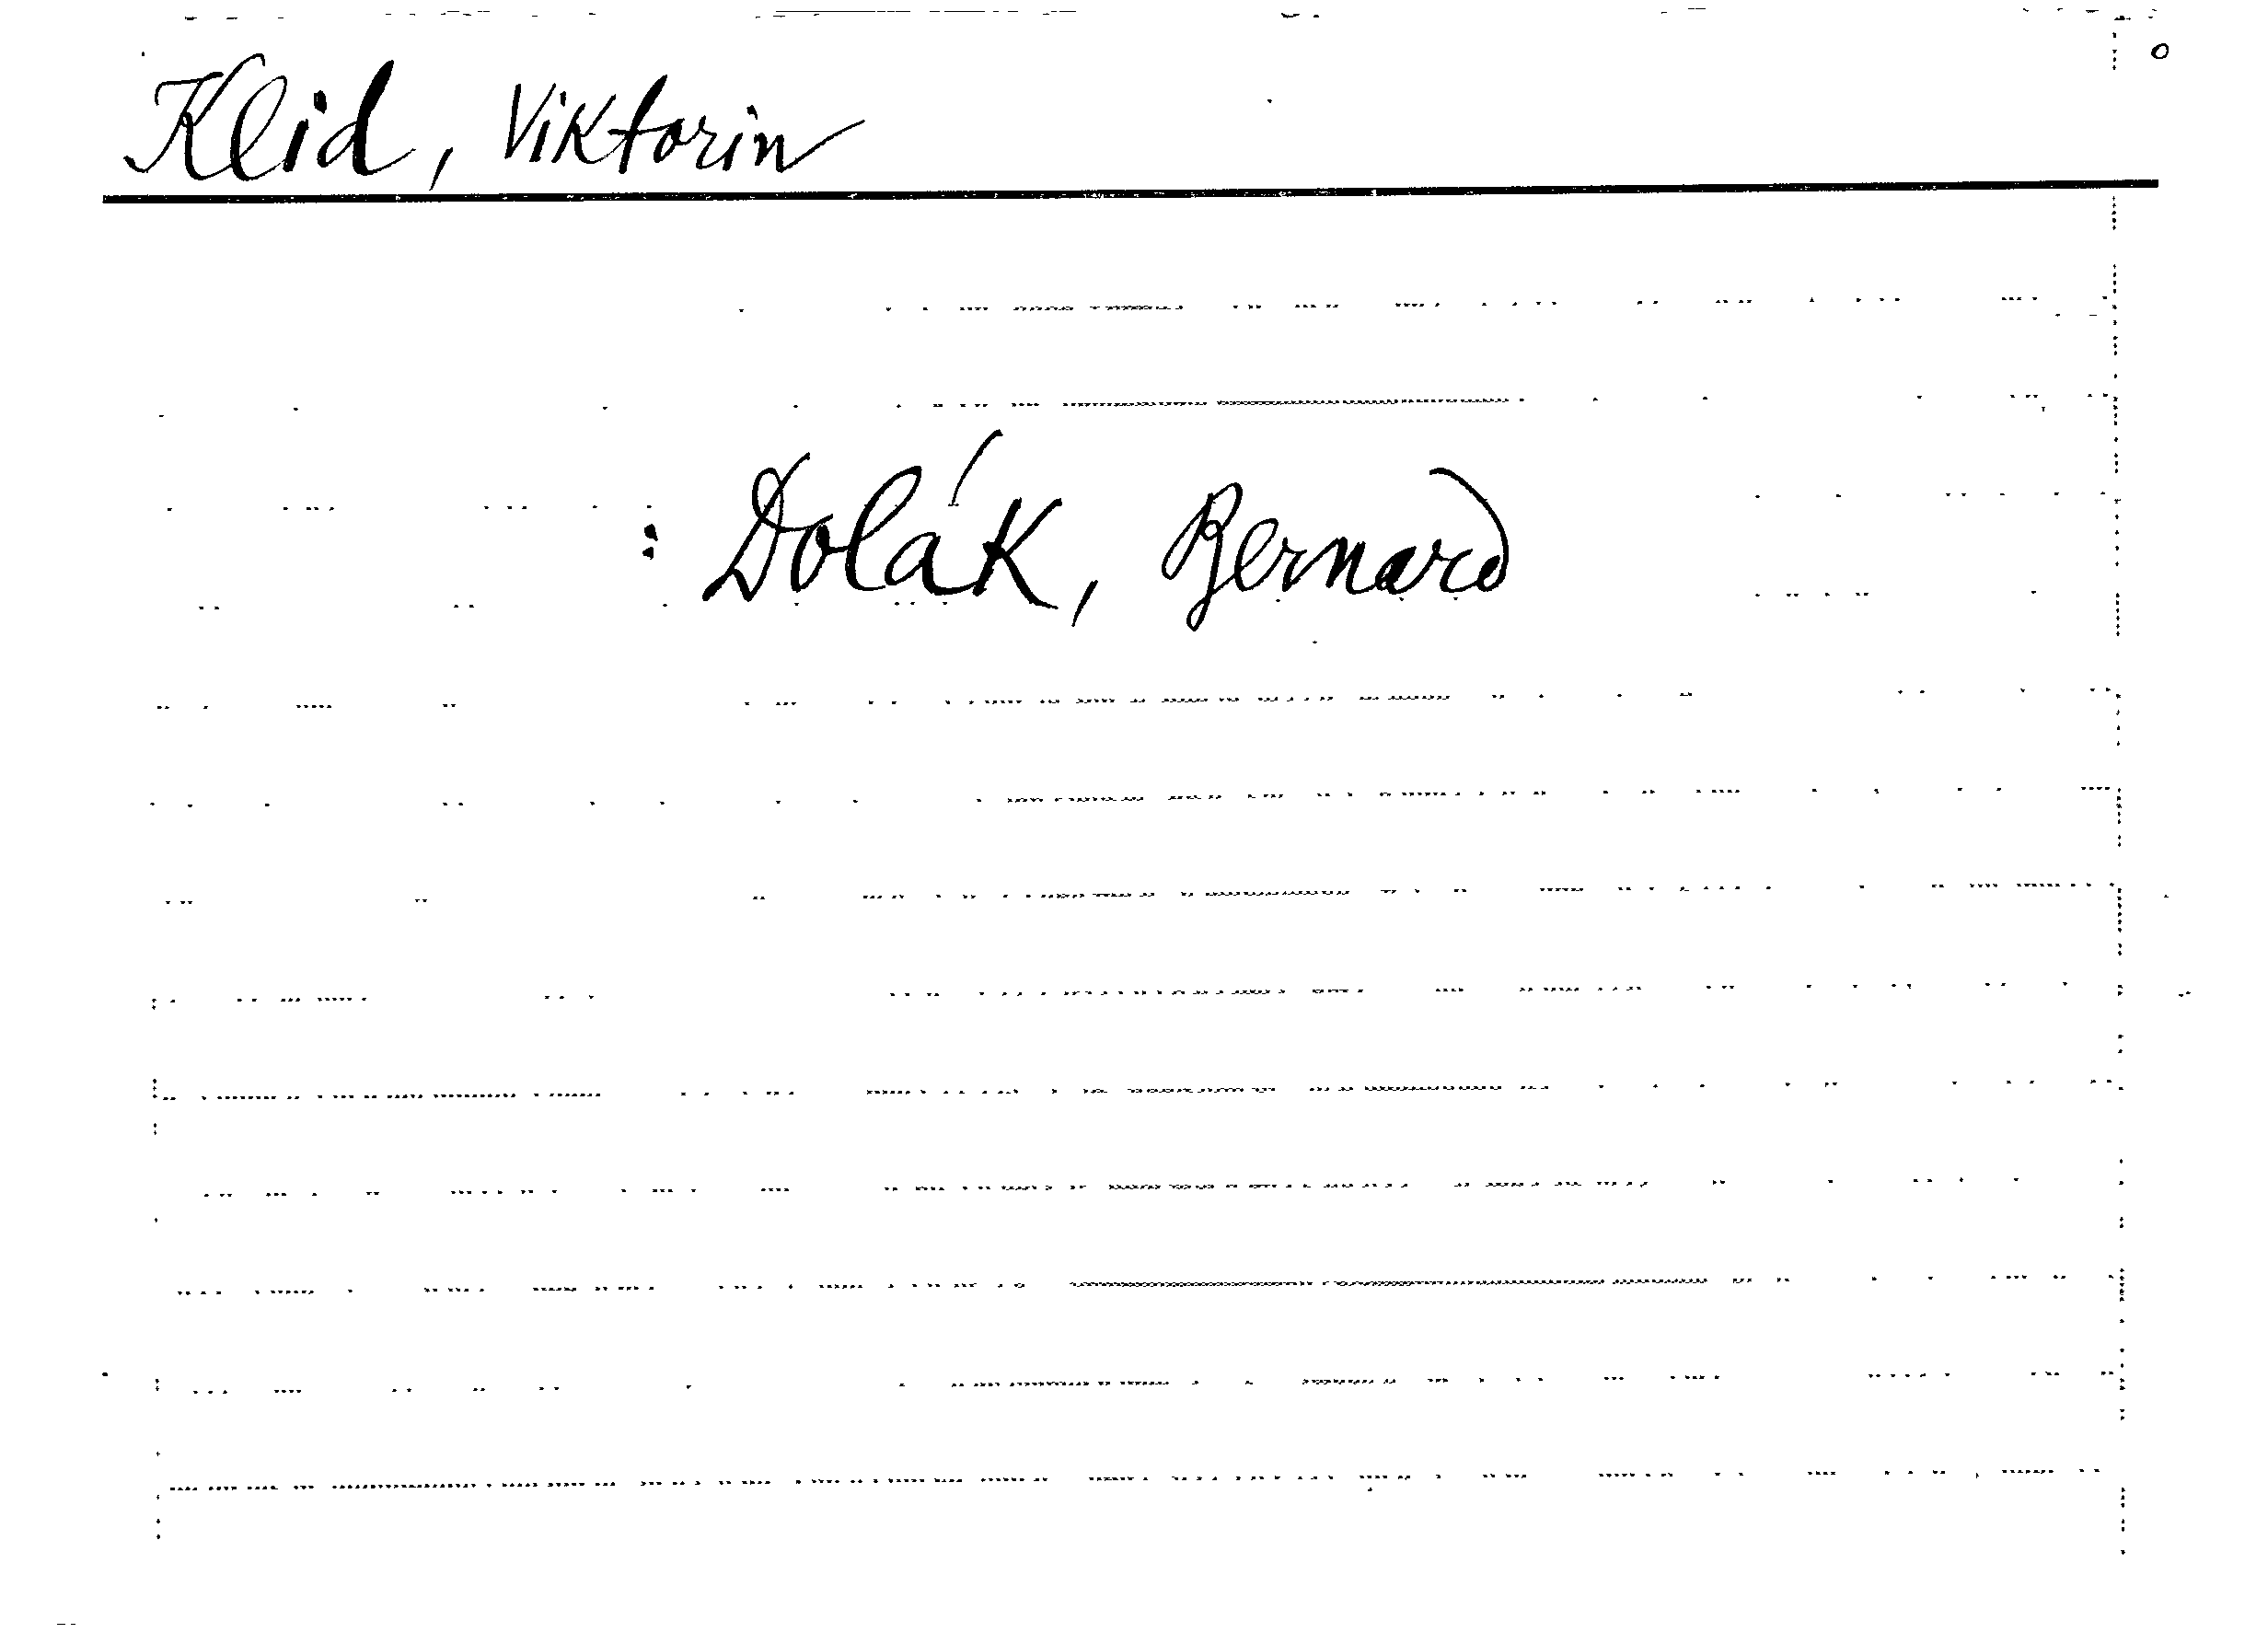 Klid, Viktorin
: Dolák, Bernard